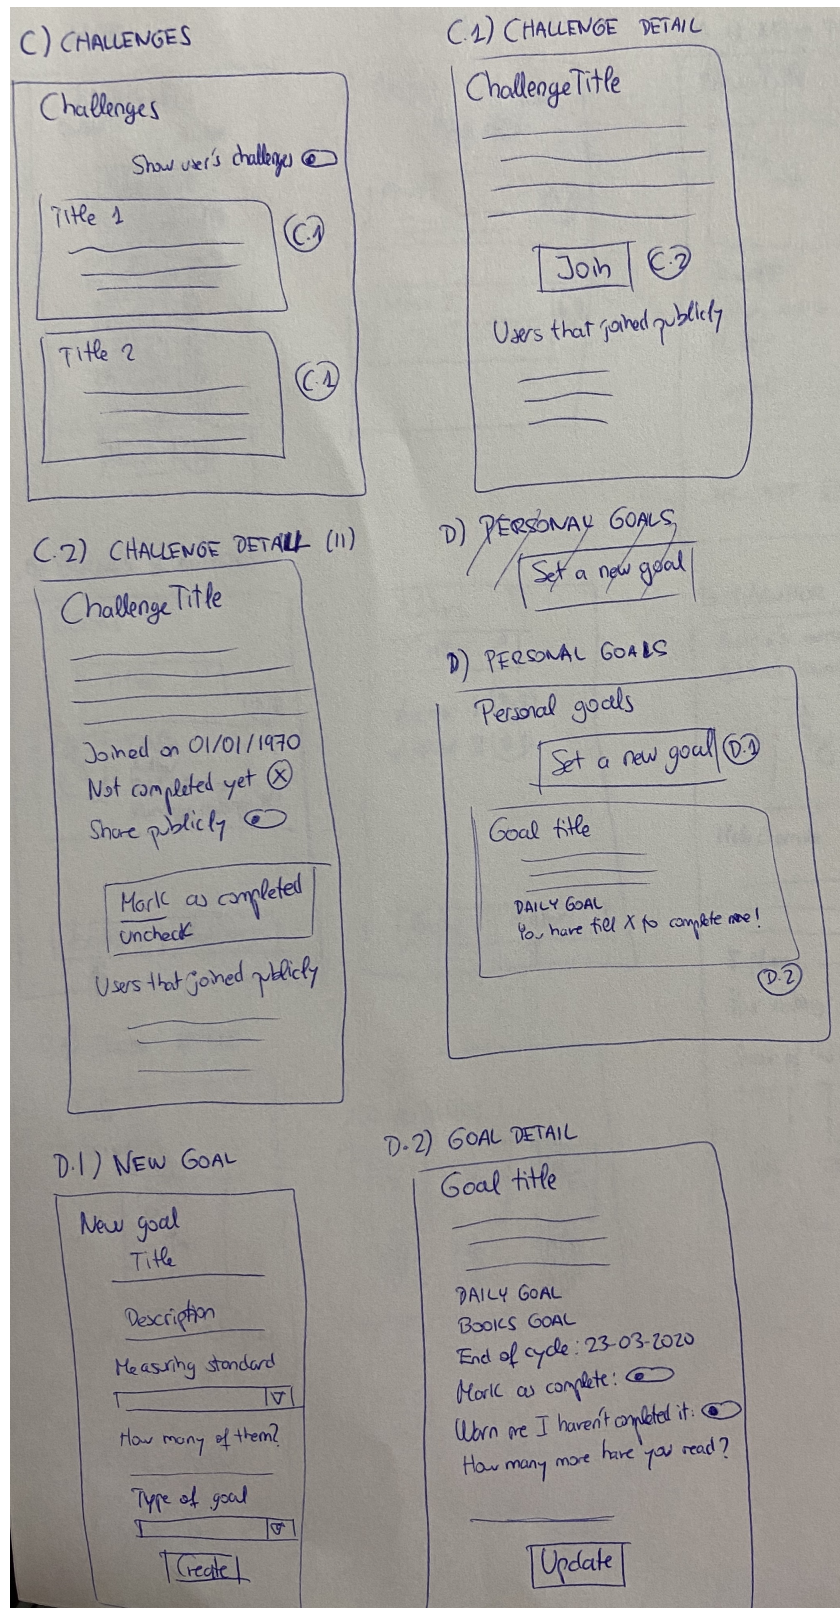 C) CHALLENGES
Challenges
Show user's challenges
Title 1
C.1
Title 2
C.1
C.1) CHALLENGE DETAIL
Challenge Title
Join
C.2
Users that joined publicly
C.2) CHALLENGE DETAIL (II)
Challenge Title
Joined on 01/01/1970
Not completed yet X
Share publicly
Mark as completed
uncheck
Users that joined publicly
D) PERSONAL GOALS
Set a new goal
D) PERSONAL GOALS
Personal goals
Set a new goal
D.1
Goal title
DAILY GOAL
You have till X to complete me!
D.2
D.1) NEW GOAL
New goal
Title
Description
Measuring standard
How many of them?
Type of goal
Create
D.2) GOAL DETAIL
Goal title
DAILY GOAL
BOOKS GOAL
End of cycle: 23-03-2020
Mark as complete:
Warn me I haven't completed it:
How many more have you read?
Update